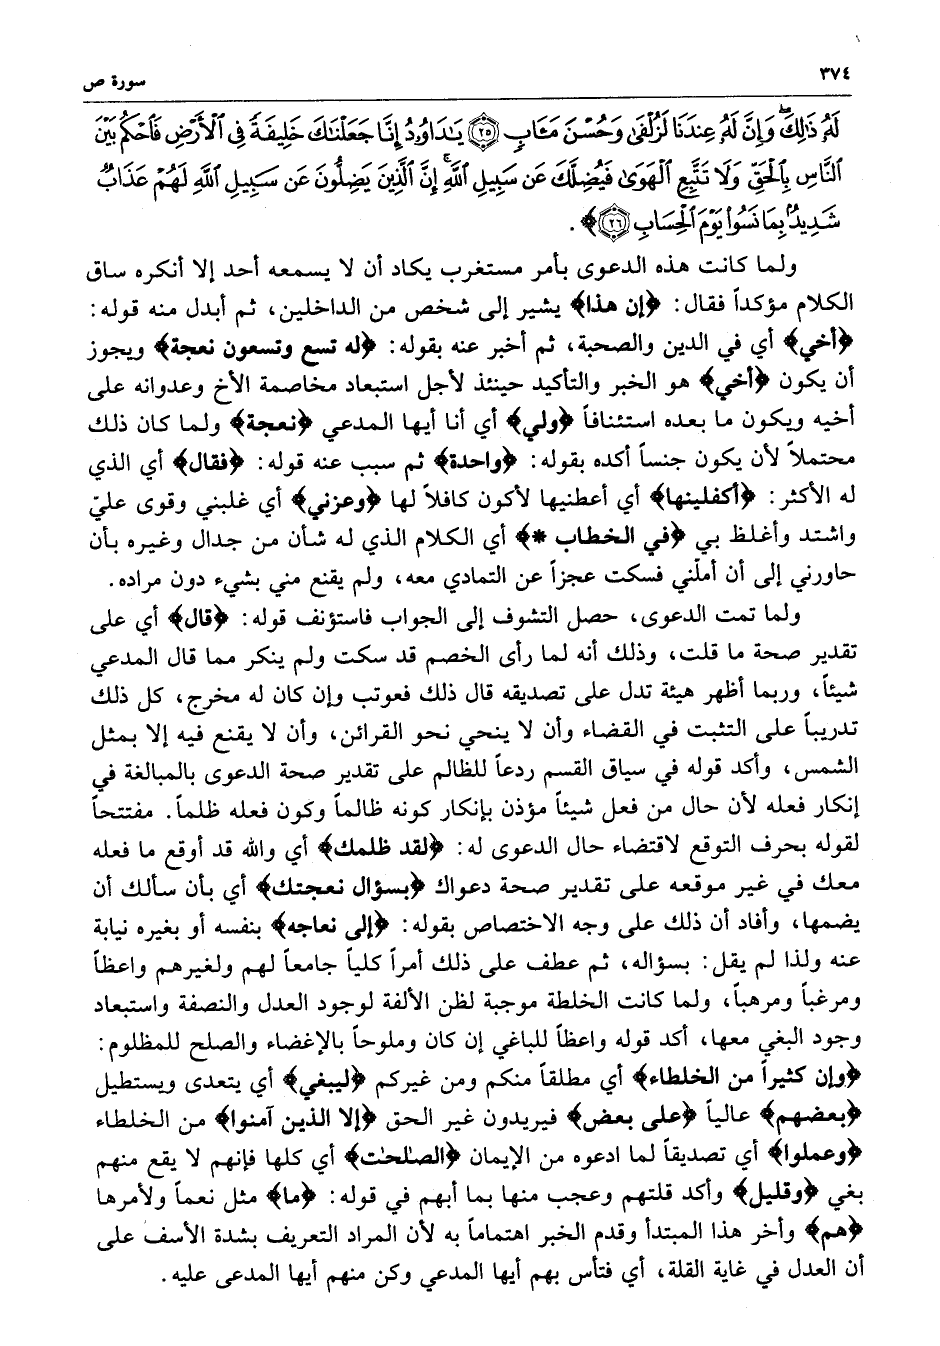 ٣٧٤
سورة ص
لَهُۥ ذَٰلِكَۖ وَإِنَّ لَهُۥ عِندَنَا لَزُلْفَىٰ وَحُسْنَ مَـَٔابٍ ﴿٢٥﴾ يَٰدَاوُۥدُ إِنَّا جَعَلْنَٰكَ خَلِيفَةً فِى ٱلْأَرْضِ فَٱحْكُم بَيْنَ
ٱلنَّاسِ بِٱلْحَقِّ وَلَا تَتَّبِعِ ٱلْهَوَىٰ فَيُضِلَّكَ عَن سَبِيلِ ٱللَّهِۚ إِنَّ ٱلَّذِينَ يَضِلُّونَ عَن سَبِيلِ ٱللَّهِ لَهُمْ عَذَابٌ
شَدِيدٌۢ بِمَا نَسُوا۟ يَوْمَ ٱلْحِسَابِ ﴿٢٦﴾﴾.
ولما كانت هذه الدعوى بأمر مستغرب يكاد أن لا يسمعه أحد إلا أنكره ساق
الكلام مؤكداً فقال: ﴿إن هذا﴾ يشير إلى شخص من الداخلين، ثم أبدل منه قوله:
﴿أخي﴾ أي في الدين والصحبة، ثم أخبر عنه بقوله: ﴿له تسع وتسعون نعجة﴾ ويجوز
أن يكون ﴿أخي﴾ هو الخبر والتأكيد حينئذ لأجل استبعاد مخاصمة الأخ وعدوانه على
أخيه ويكون ما بعده استئنافاً ﴿ولي﴾ أي أنا أيها المدعي ﴿نعجة﴾ ولما كان ذلك
محتملاً لأن يكون جنساً أكده بقوله: ﴿واحدة﴾ ثم سبب عنه قوله: ﴿فقال﴾ أي الذي
له الأكثر: ﴿أكفلينها﴾ أي أعطنيها لأكون كافلاً لها ﴿وعزني﴾ أي غلبني وقوى عليّ
واشتد وأغلظ بي ﴿في الخطاب *﴾ أي الكلام الذي له شأن من جدال وغيره بأن
حاورني إلى أن أملّني فسكت عجزاً عن التمادي معه، ولم يقنع مني بشيء دون مراده.
ولما تمت الدعوى، حصل التشوف إلى الجواب فاستؤنف قوله: ﴿قال﴾ أي على
تقدير صحة ما قلت، وذلك أنه لما رأى الخصم قد سكت ولم ينكر مما قال المدعي
شيئاً، وربما أظهر هيئة تدل على تصديقه قال ذلك فعوتب وإن كان له مخرج، كل ذلك
تدريباً على التثبت في القضاء وأن لا ينحي نحو القرائن، وأن لا يقنع فيه إلا بمثل
الشمس، وأكد قوله في سياق القسم ردعاً للظالم على تقدير صحة الدعوى بالمبالغة في
إنكار فعله لأن حال من فعل شيئاً مؤذن بإنكار كونه ظالماً وكون فعله ظلماً. مفتتحاً
لقوله بحرف التوقع لاقتضاء حال الدعوى له: ﴿لقد ظلمك﴾ أي والله قد أوقع ما فعله
معك في غير موقعه على تقدير صحة دعواك ﴿بسؤال نعجتك﴾ أي بأن سألك أن
يضمها، وأفاد أن ذلك على وجه الاختصاص بقوله: ﴿إلى نعاجه﴾ بنفسه أو بغيره نيابة
عنه ولذا لم يقل: بسؤاله، ثم عطف على ذلك أمراً كلياً جامعاً لهم ولغيرهم واعظاً
ومرغباً ومرهباً، ولما كانت الخلطة موجبة لظن الألفة لوجود العدل والنصفة واستبعاد
وجود البغي معها، أكد قوله واعظاً للباغي إن كان وملوحاً بالإغضاء والصلح للمظلوم:
﴿وإن كثيراً من الخلطاء﴾ أي مطلقاً منكم ومن غيركم ﴿ليبغي﴾ أي يتعدى ويستطيل
﴿بعضهم﴾ عالياً ﴿على بعض﴾ فيريدون غير الحق ﴿إلا الذين آمنوا﴾ من الخلطاء
﴿وعملوا﴾ أي تصديقاً لما ادعوه من الإيمان ﴿الصلحٰت﴾ أي كلها فإنهم لا يقع منهم
بغي ﴿وقليل﴾ وأكد قلتهم وعجب منها بما أبهم في قوله: ﴿ما﴾ مثل نعماً ولأمرها
﴿هم﴾ وأخر هذا المبتدأ وقدم الخبر اهتماماً به لأن المراد التعريف بشدة الأسف على
أن العدل في غاية القلة، أي فتأس بهم أيها المدعي وكن منهم أيها المدعى عليه.